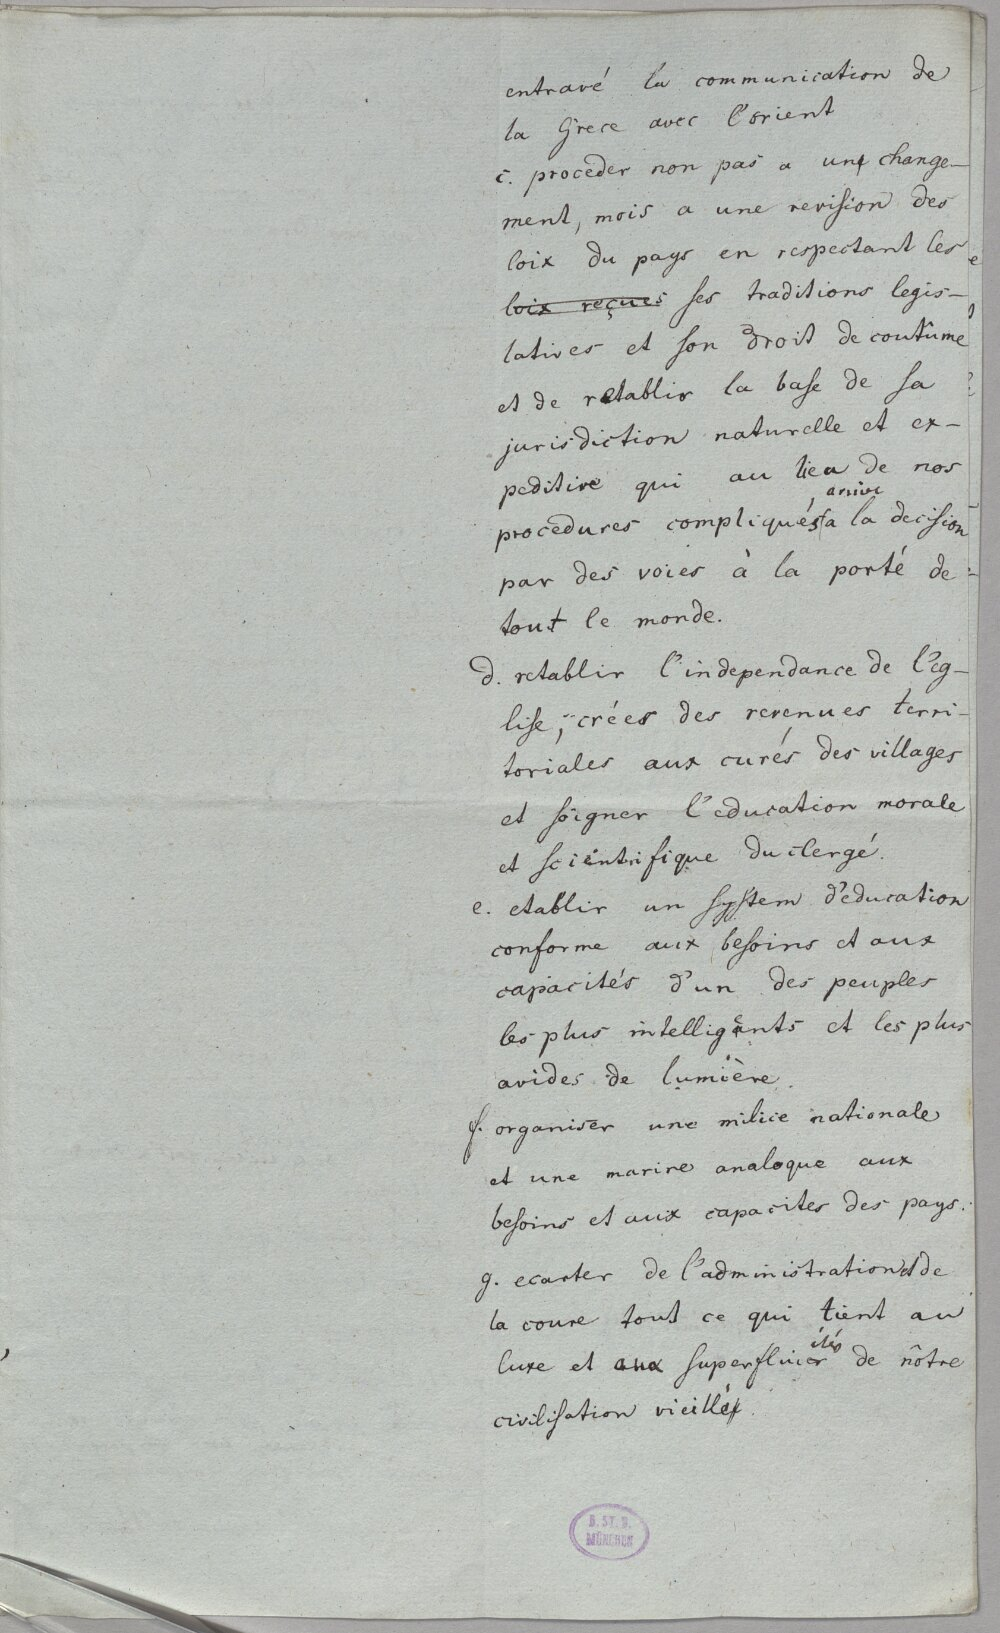 entravé la communication de
la Grece avec l'orient
c. proceder non pas a un change-
ment, mois a une revision des
loix du pays en respectant les
loix reçues ses traditions legis-
latives et son droit de coutûme
et de retablir la base de sa
jurisdiction naturelle et ex-
peditive qui au lieu de nos
arrive
procedures compliqués a la decision
par des voies à la porté de
tout le monde.
d. retablir l'independance de l'eg-
lise, crées des revenues terri-
toriales aux curés des villages
et soigner l'education morale
et scientrifique du clergé.
e. etablir un system d'education
conforme aux besoins et aux
capacités d'un des peuples
les plus intelligents et les plus
avides de lumière.
f. organiser une milice nationale
et une marine analogue aux
besoins et aux capacites des pays.
g. ecarter de l'administration et de
la coure tout ce qui tient au
ités
luxe et aux superfluier de nôtre
civilisation vieillé
B. ST. B.
MÜNCHEN